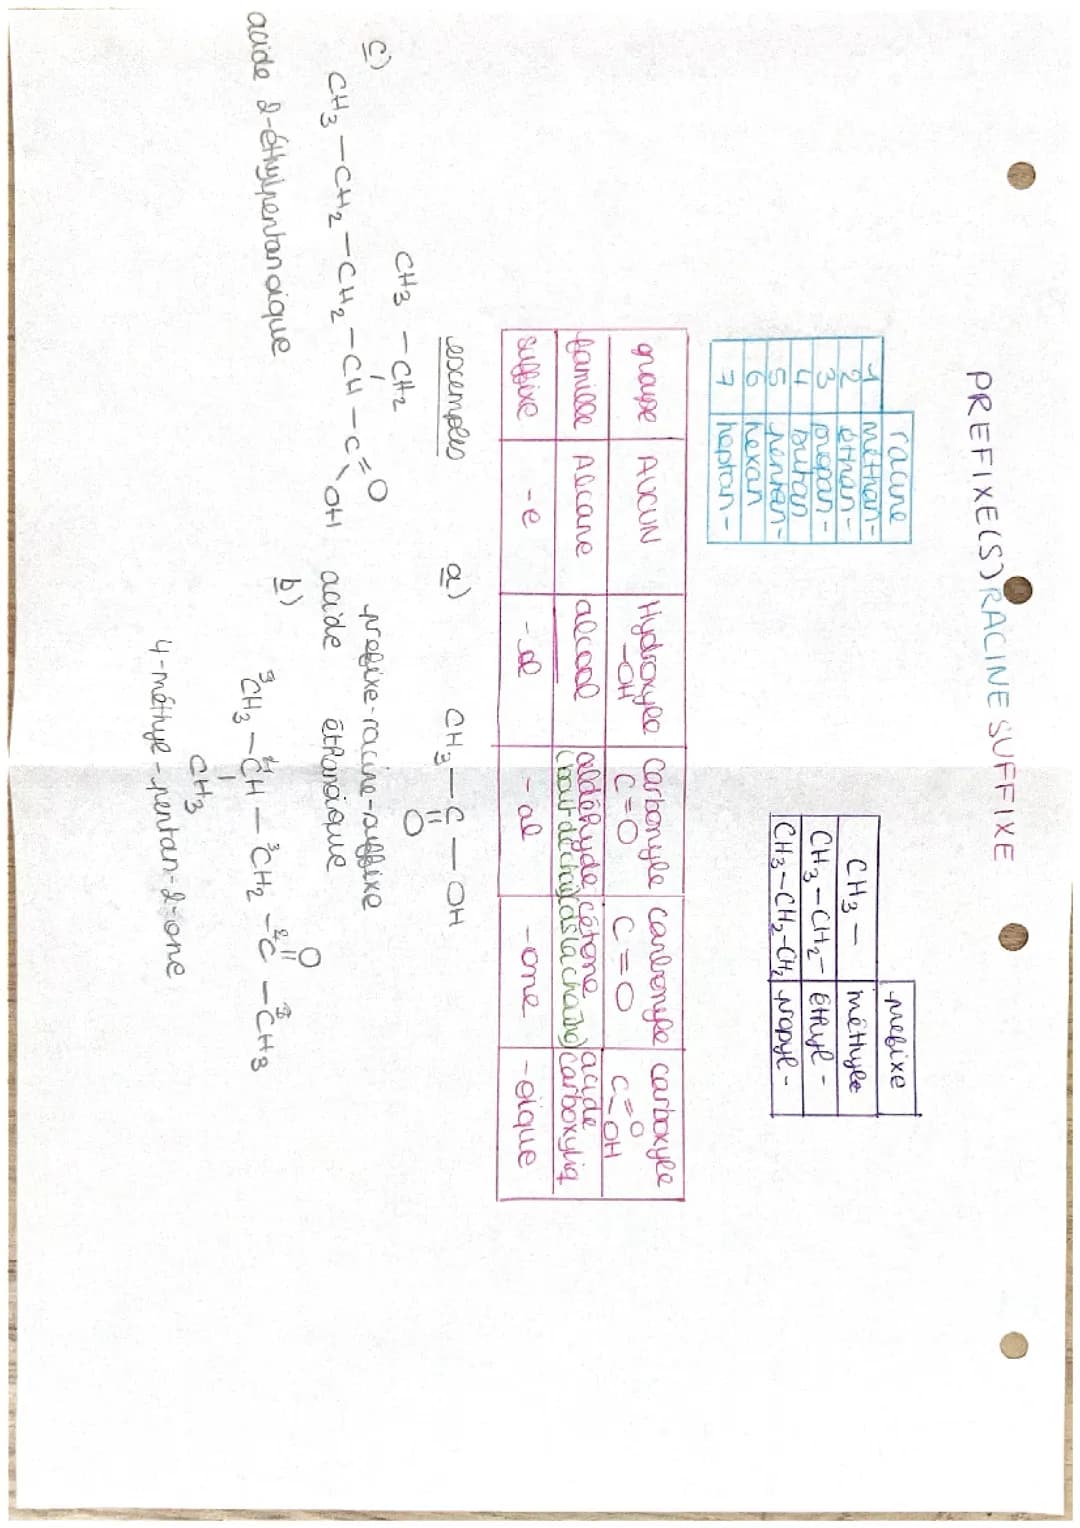 PREFIXE(S) RACINE SUFFIXE
racine
1 méthan-
2 éthan-
3 propan-
4 butan
5 pentan-
6 hexan
7 heptan-
prefixe
CH3 — méthyle
CH3-CH2- éthyl-
CH3-CH2-CH2 propyl-
groupe AUCUN Hydroxyle -OH carbonyle C=O carbonyle C=O carboxyle C=O-OH
famille Alcane alcool aldéhyde (bout de chaîne) cétone (ds la chaîne) acide carboxyliq
suffixe -e -ol -al -one -oïque
exemples a) CH3 — C — OH
O
prefixe-racine-suffixe
acide éthanoïque
b)
O
3CH3 — 4CH — 3CH2 — 2C — 3CH3
CH3
4-méthyl-pentan-2-one
c)
CH3 — CH2
CH3 — CH2 — CH2 — CH — C = O
OH
acide 2-éthylpentanoïque